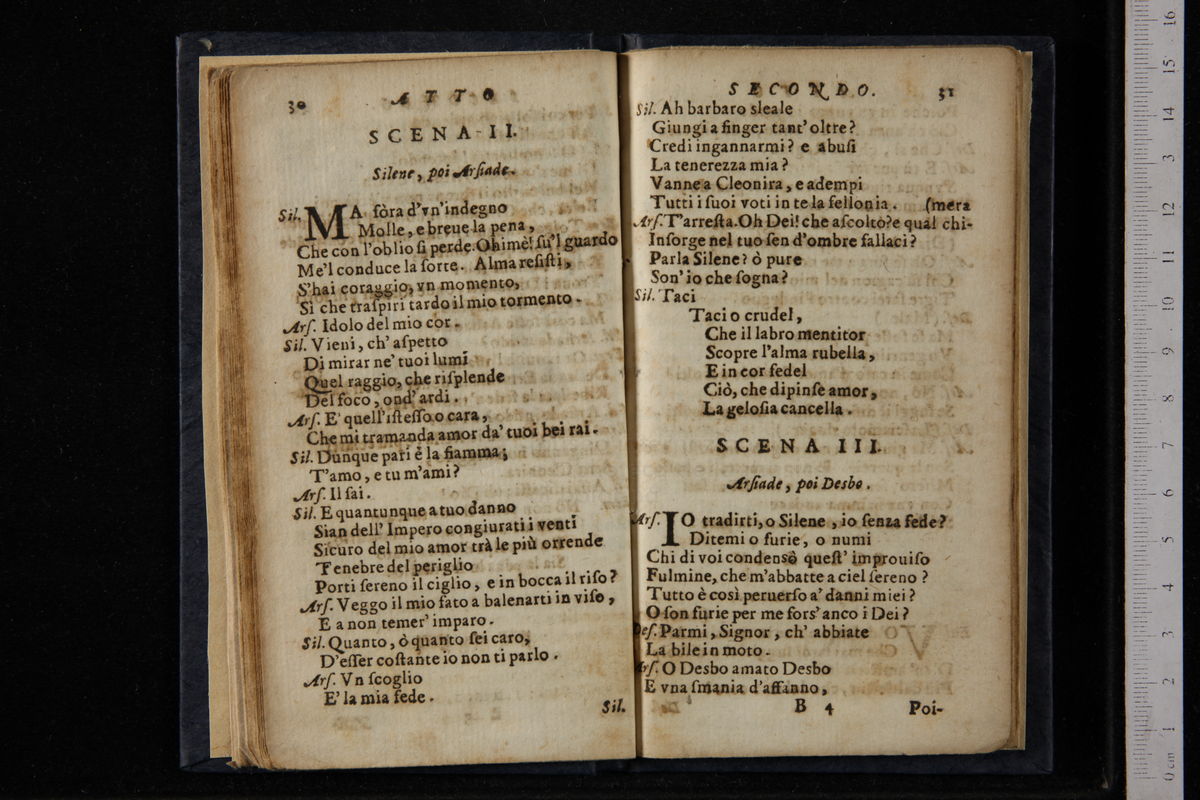 30 ATTO
SCENA II.
Silene, poi Arsiade.
Sil. MA sòra d'vn'indegno
Molle, e breue la pena,
Che con l'oblio si perde. Ohimè! sù'l guardo
Me'l conduce la sorte. Alma resisti,
S'hai coraggio, vn momento,
Sì che traspiri tardo il mio tormento.
Ars. Idolo del mio cor.
Sil. Vieni, ch' aspetto
Di mirar ne' tuoi lumi
Quel raggio, che risplende
Del foco, ond' ardi.
Ars. E' quell'istesso o cara,
Che mi tramanda amor da' tuoi bei rai.
Sil. Dunque pari è la fiamma;
T'amo, e tu m'ami?
Ars. Il sai.
Sil. E quantunque a tuo danno
Sian dell' Impero congiurati i venti
Sicuro del mio amor trà le più orrende
Tenebre del periglio
Porti sereno il ciglio, e in bocca il riso?
Ars. Veggo il mio fato a balenarti in viso,
E a non temer' imparo.
Sil. Quanto, ò quanto sei caro,
D'esser costante io non ti parlo.
Ars. Vn scoglio
E' la mia fede.
Sil.
SECONDO. 31
Sil. Ah barbaro sleale
Giungi a finger tant' oltre?
Credi ingannarmi? e abusi
La tenerezza mia?
Vanne a Cleonira, e adempi
Tutti i suoi voti in te la fellonia. (mera
Ars. T'arresta. Oh Dei! che ascolto? e qual chi-
Insorge nel tuo sen d'ombre fallaci?
Parla Silene? ò pure
Son' io che sogna?
Sil. Taci
Taci o crudel,
Che il labro mentitor
Scopre l'alma rubella,
E in cor fedel
Ciò, che dipinse amor,
La gelosia cancella.
SCENA III.
Arsiade, poi Desbo.
Ars. IO tradirti, o Silene, io senza fede?
Ditemi o furie, o numi
Chi di voi condensò quest' improuiso
Fulmine, che m'abbatte a ciel sereno?
Tutto è così peruerso a' danni miei?
O son furie per me fors' anco i Dei?
Des. Parmi, Signor, ch' abbiate
La bile in moto.
Ars. O Desbo amato Desbo
E vna smania d'affanno,
B 4 Poi-
0 cm 1 2 3 4 5 6 7 8 9 10 11 12 13 14 15 16